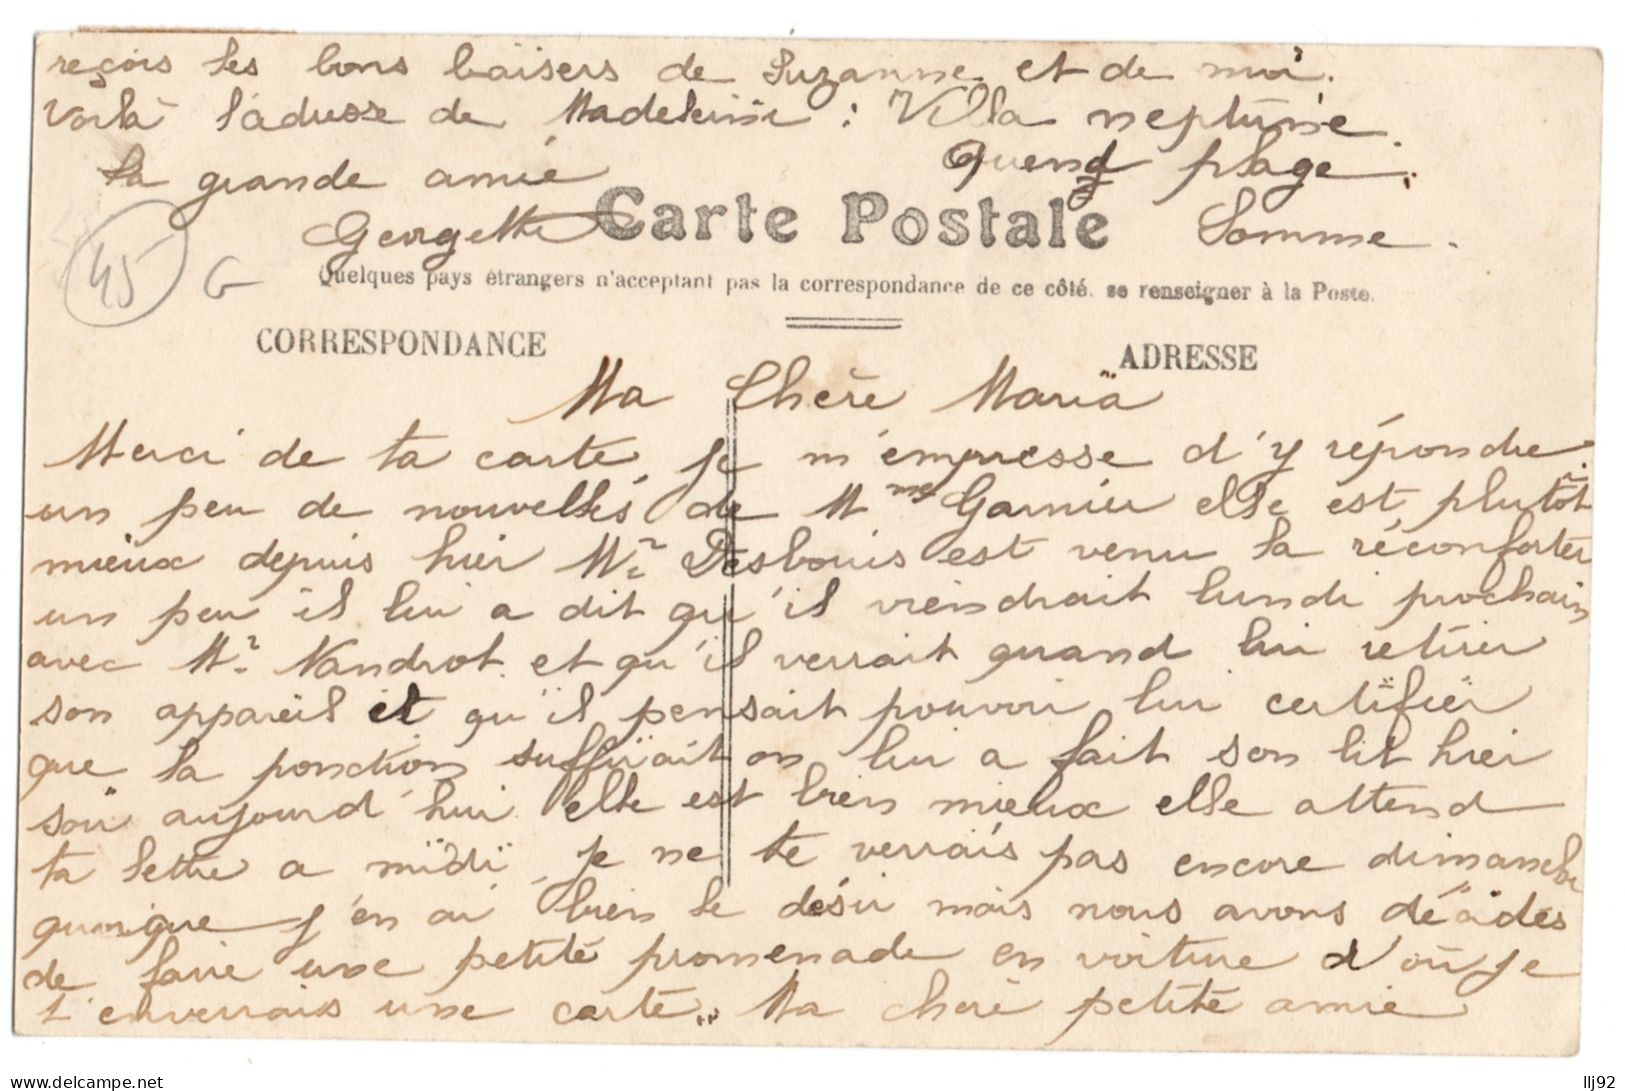 reçois les bons baisers de Suzanne et de moi.
Voilà l'adresse de Madeleine : Villa neptune.
ta grande amie Quend plage.
Georgette Carte Postale Somme.
45 G
Quelques pays étrangers n'acceptant pas la correspondance de ce côté, se renseigner à la Poste.
CORRESPONDANCE ADRESSE
Ma Chère Maria
Merci de ta carte, je m'empresse d'y répondre.
un peu de nouvelles de Mme Garnier elle est plutôt
mieux depuis hier Mr. Desbouis est venu la réconforter
un peu il lui a dit qu'il viendrait lundi prochain
avec Mr. Nandrot. et qu'il verrait quand lui retirer
son appareil et qu'il pensait pouvoir lui certifier
que la ponction suffirait on lui a fait son lit hier
soir aujourd'hui elle est bien mieux elle attend
ta lettre a midi, je ne te verrais pas encore dimanche
quoique j'en ai bien le désir mais nous avons
de faire une petite promenade en voiture d'où je
t'enverrais une carte.. Ma chère petite amie
llj92